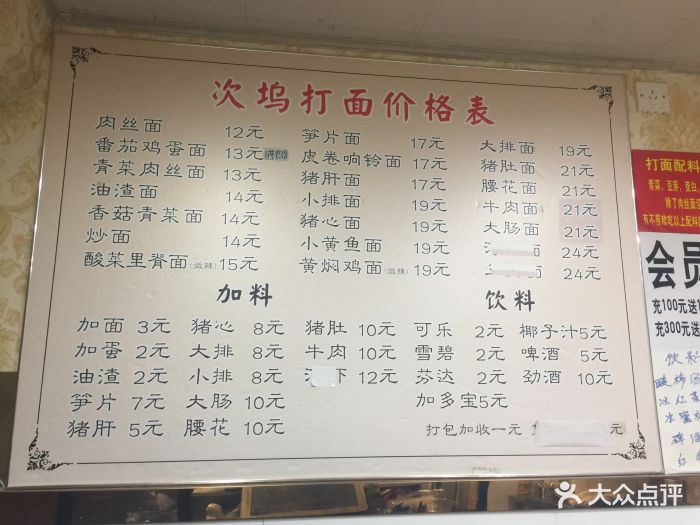 次坞打面价格表
肉丝面 12元
番茄鸡蛋面 13元
青菜肉丝面 13元
油渣面 14元
香菇青菜面 14元
炒面 14元
酸菜里脊面(微辣) 15元
笋片面 17元
皮卷响铃面 17元
猪肝面 17元
小排面 19元
猪心面 19元
小黄鱼面 19元
黄焖鸡面(微辣) 19元
大排面 19元
猪肚面 21元
腰花面 21元
牛肉面 21元
大肠面 21元
面 24元
面 24元
加料
加面 3元 猪心 8元 猪肚 10元
加蛋 2元 大排 8元 牛肉 10元
油渣 2元 小排 8元 下 12元
笋片 7元 大肠 10元
猪肝 5元 腰花 10元
饮料
可乐 2元 椰子汁5元
雪碧 2元 啤酒 5元
芬达 2元 劲酒 10元
加多宝5元
打包加收一元 元
打面配料
青菜，豆芽，茭白，
除了肉丝面
有不喜欢吃以上配料
会员
充100元送
充300元送
饮料
酸梅汤
冰红茶
冰
啤酒
大众点评